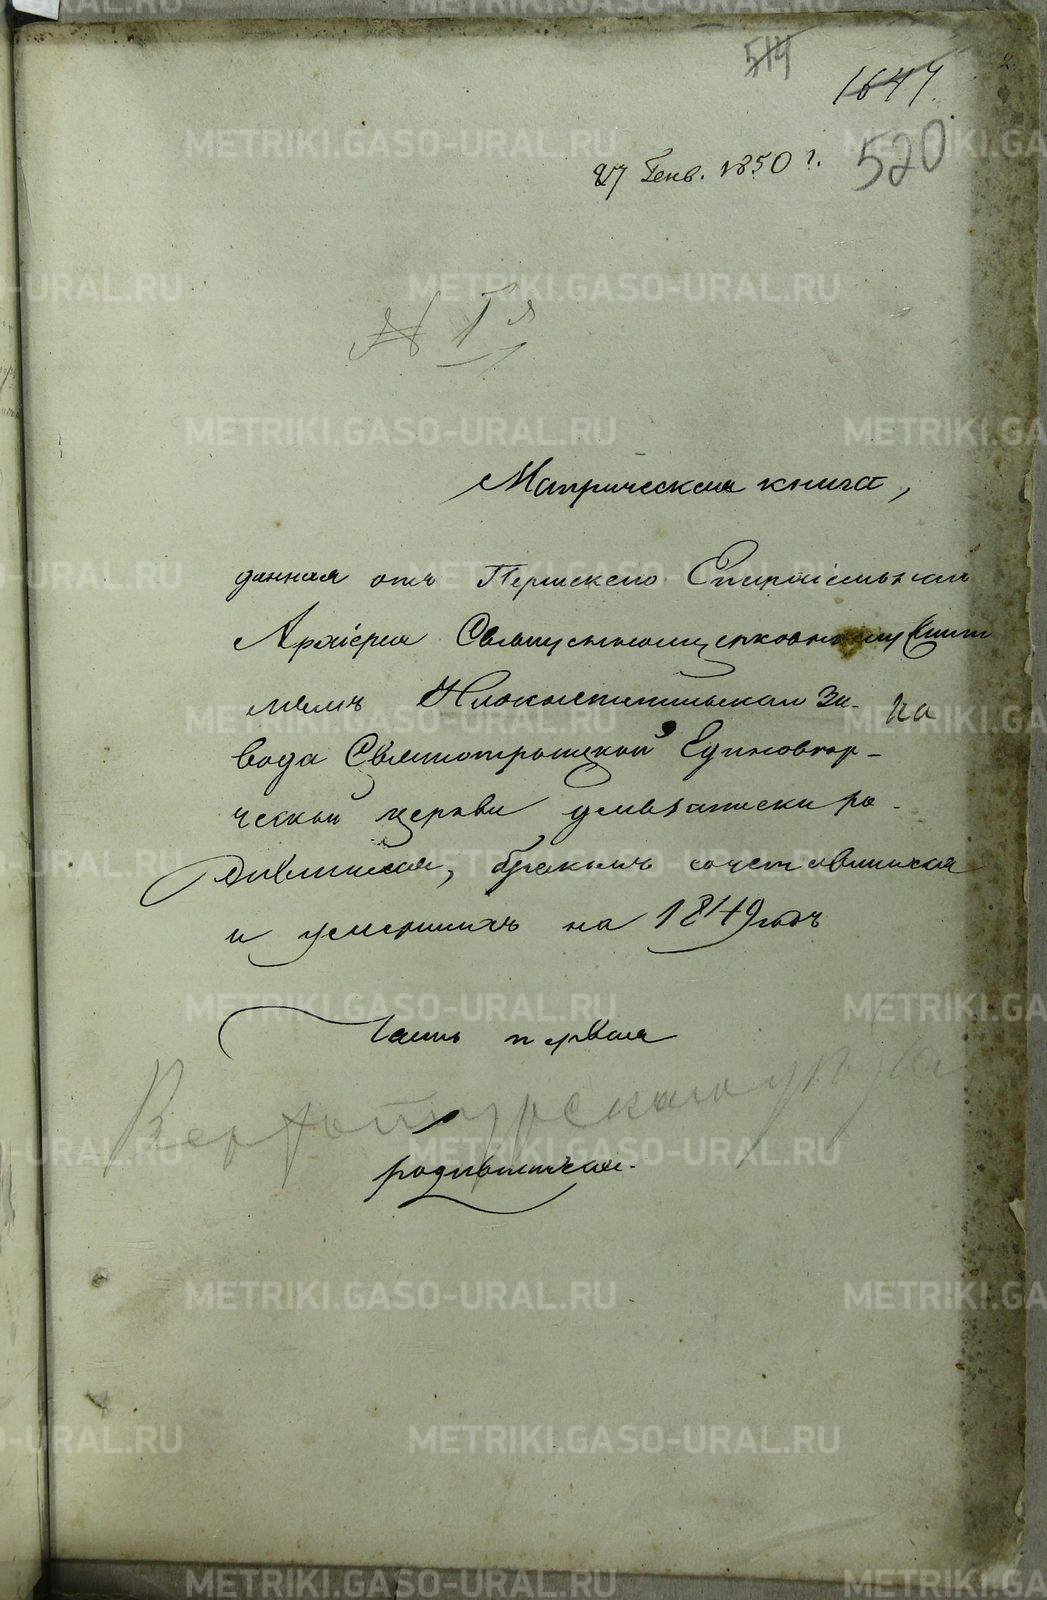 514
1644.
27 Генв. 1850 г.
520
Метрическая книга,
данная отъ Пермскаго Епархіальнаго
Архіерея Священноцерковнослужи
телямъ за-
вода Святотроицкой Единовѣр-
ческой церкви для записки ро-
дившихся, бракомъ сочетавшихся
и умершихъ на 1849 годъ
Часть первая
Верхотурскаго уѣзда
родившихся.
METRIKI.GASO-URAL.RU